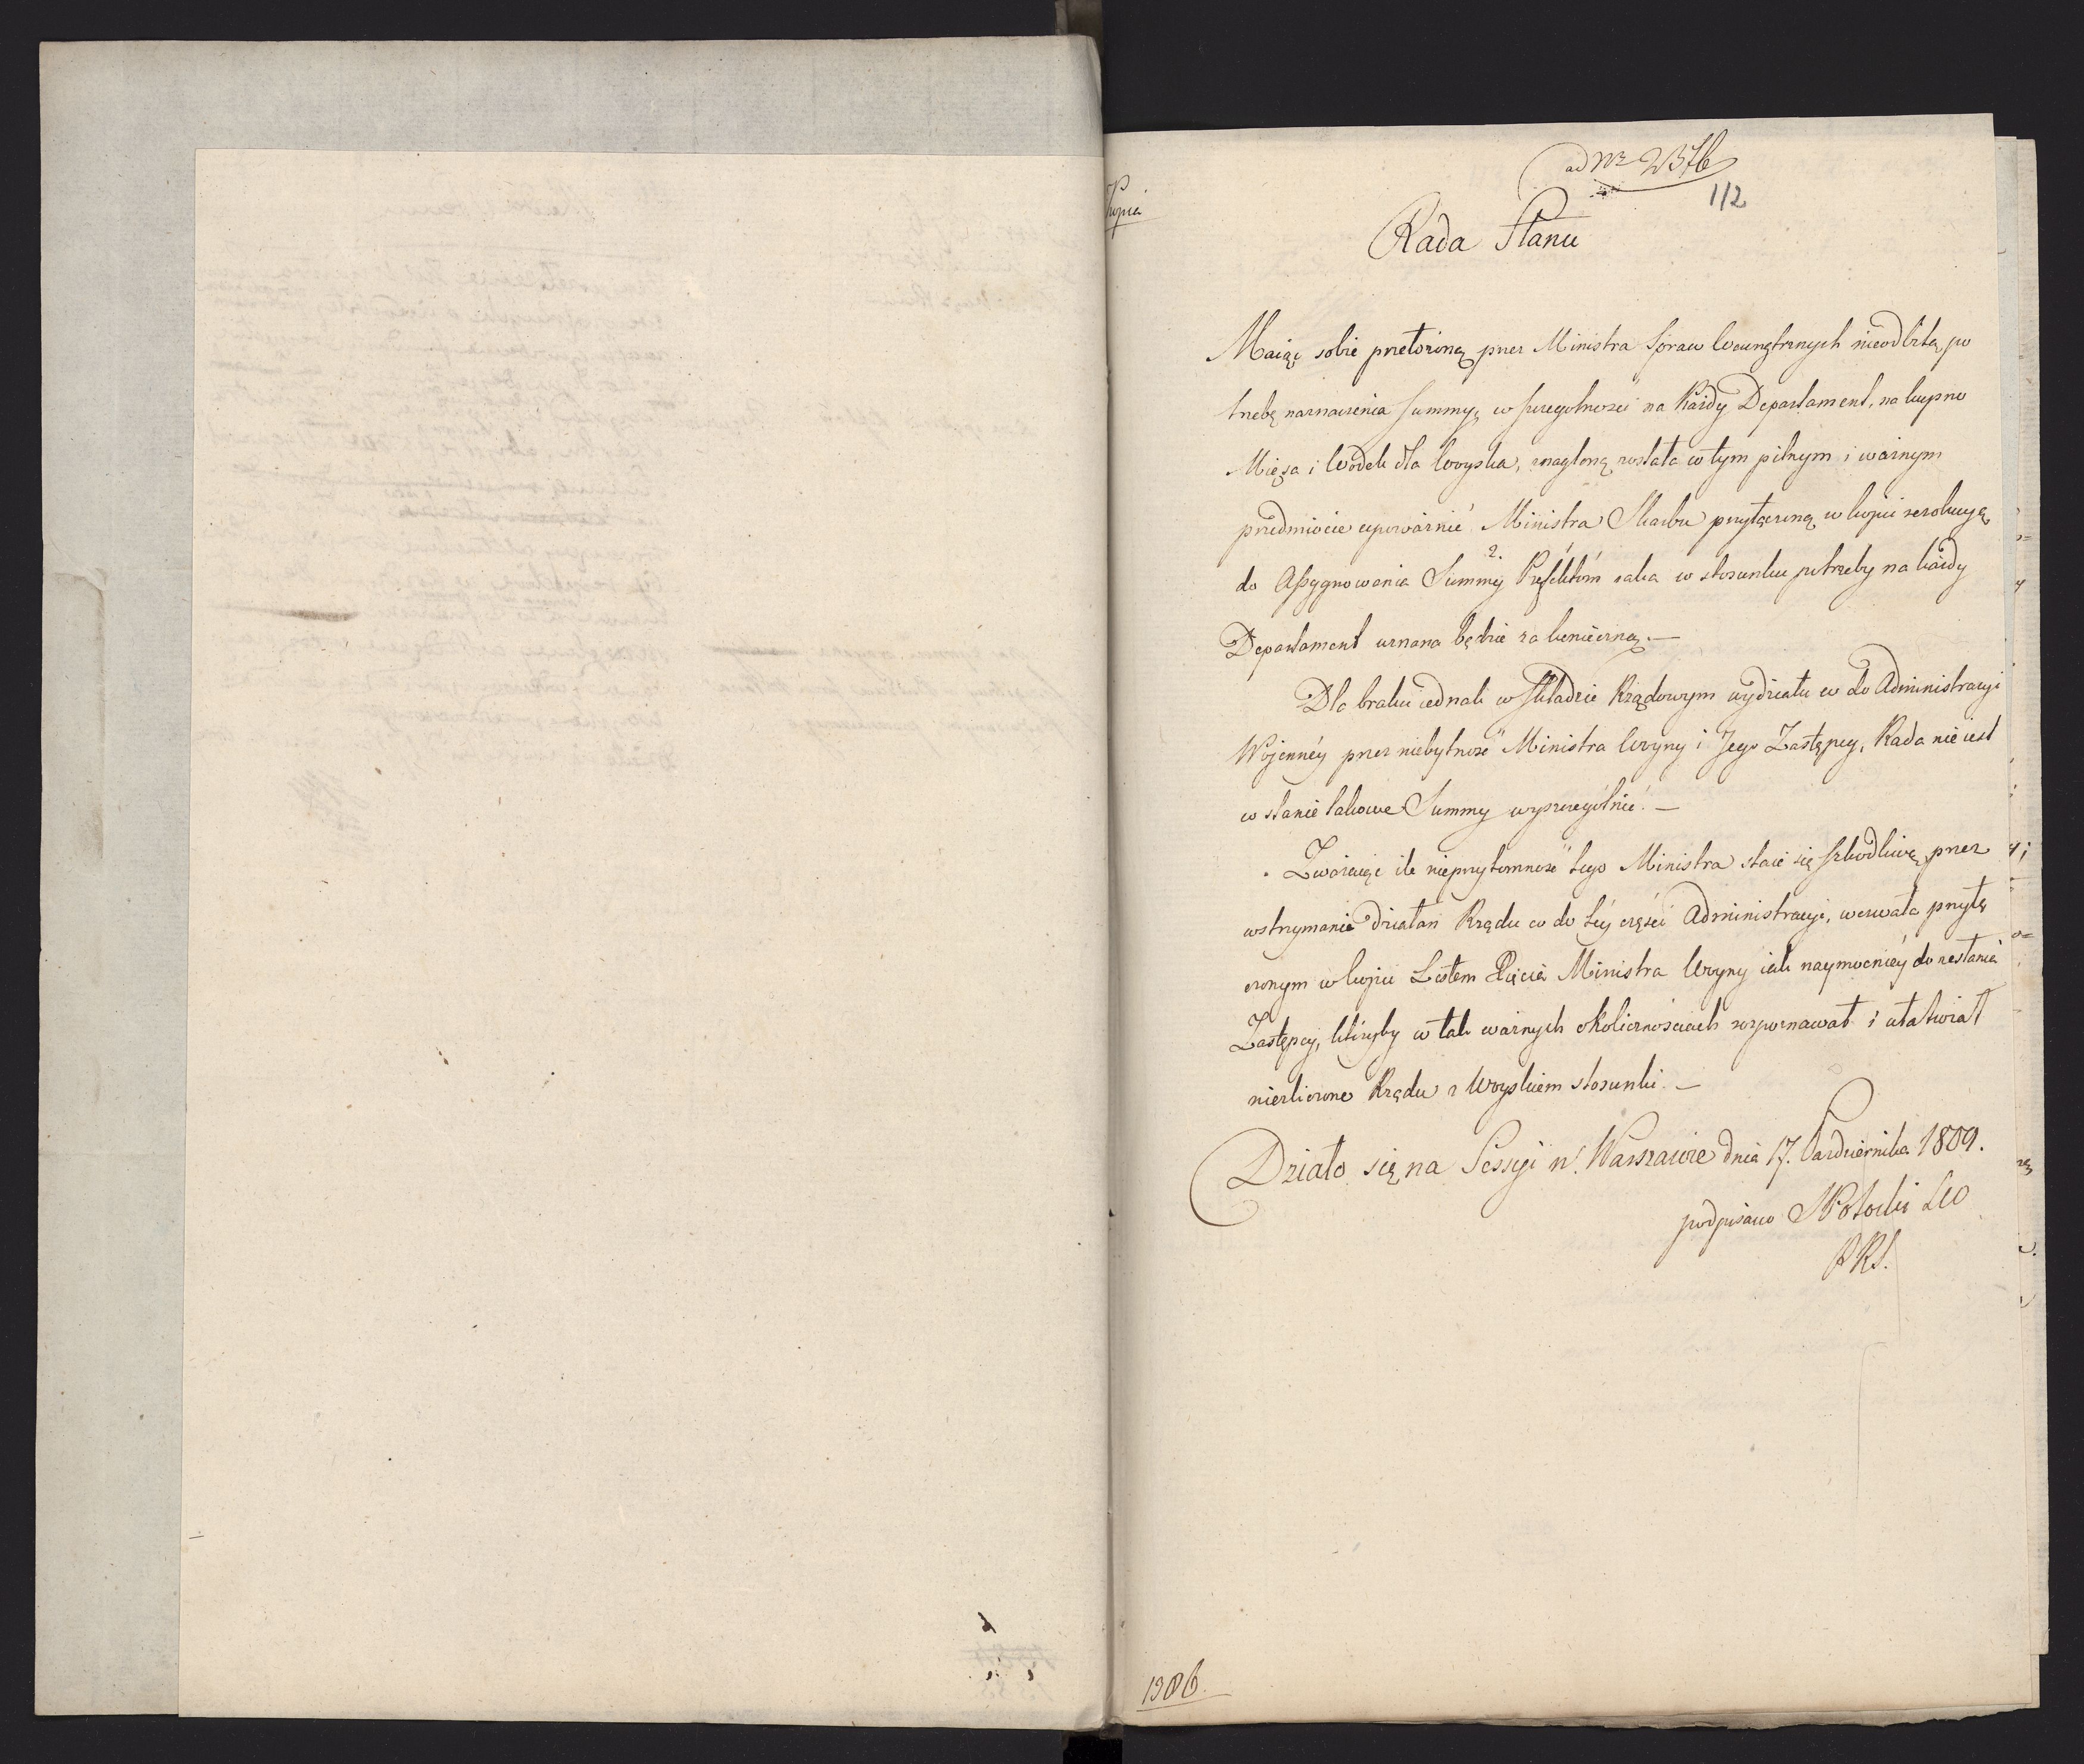 ad Nr 2376
112
Kopia
Rada Stanu
Maiąc sobie przełożoną przez Ministra Spraw Wewnętrznych nieodbitą po
trzebę naznaczenia Summy, w szczegolności na Każdy Departament, na kupno
Mięsa i Wódek dla Woyska, znagloną została w tym pilnym i ważnym
przedmiocie upoważnić Ministra Skarbu przyłączoną w kopii rezolucyą
do Assygnowania Summy Prefektóm iaka w stosunku potrzeby na każdy
Departament uznana będzie za konieczną. —
Dla braku iednak w składzie Rządowym wydziału co do Administracyi
Wojennéy przez niebytność Ministra Woyny i Jego Zastępcy, Rada nie iest
w stanie takowe Summy wyszczególnić. —
Zważaiąc ile nieprzytomność tego Ministra staie się szkodliwą przez
wstrzymanie działań Rządu co do téy części Administracyi, wezwała przyłą
czonym w kopii Listem Xięcia Ministra Woyny iak naymocniéy do zesłania
Zastępcy, któryby w tak ważnych okolicznościach rozpoznawał i ułatwiał
niezliczone Rządu z Woyskiem stosunki. —
Działo się na Sessyi w Warszawie dnia 17. Października 1809.
podpisano Potocki
PRS.
1986.